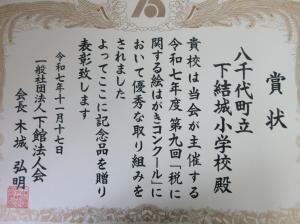 賞状
八千代町立
下結城小学校殿
貴校は当会が主催する
令和七年度 第九回「税に
関する絵はがきコンクール」に
おいて優秀な取り組みを
されました
よってここに記念品を贈り
表彰致します
令和七年十一月十七日
一般社団法人 下館法人会
会長 木城 弘明